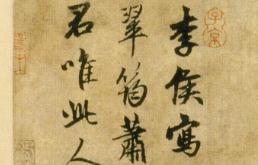 李侯寫
翠筠蕭
君唯此人